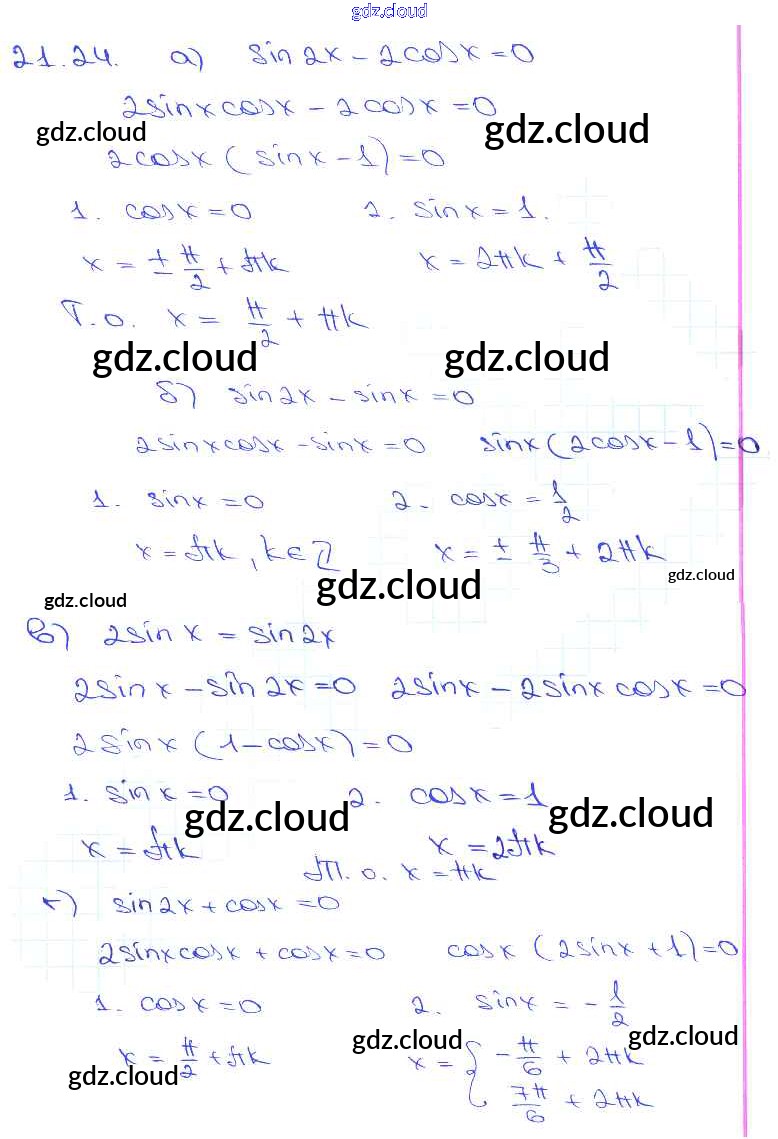 gdz.cloud
21.24. а) sin2x - 2cosx = 0
2sinxcosx - 2cosx = 0
gdz.cloud gdz.cloud
2cosx (sinx - 1) = 0
1. cosx = 0 2. sinx = 1.
x = ± π/2 + πk x = 2πk + π/2
Т.о. x = π/2 + πk
gdz.cloud gdz.cloud
б) sin2x - sinx = 0
2sinxcosx - sinx = 0 sinx(2cosx - 1) = 0
1. sinx = 0 2. cosx = 1/2
x = πk, k ∈ Z x = ± π/3 + 2πk
gdz.cloud gdz.cloud gdz.cloud
в) 2sinx = sin2x
2sinx - sin2x = 0 2sinx - 2sinxcosx = 0
2sinx (1 - cosx) = 0
1. sinx = 0 2. cosx = 1
gdz.cloud gdz.cloud
x = πk x = 2πk
Т.о. x = πk
г) sin2x + cosx = 0
2sinxcosx + cosx = 0 cosx (2sinx + 1) = 0
1. cosx = 0 2. sinx = - 1/2
gdz.cloud gdz.cloud
x = π/2 + πk x = { - π/6 + 2πk
gdz.cloud 7π/6 + 2πk